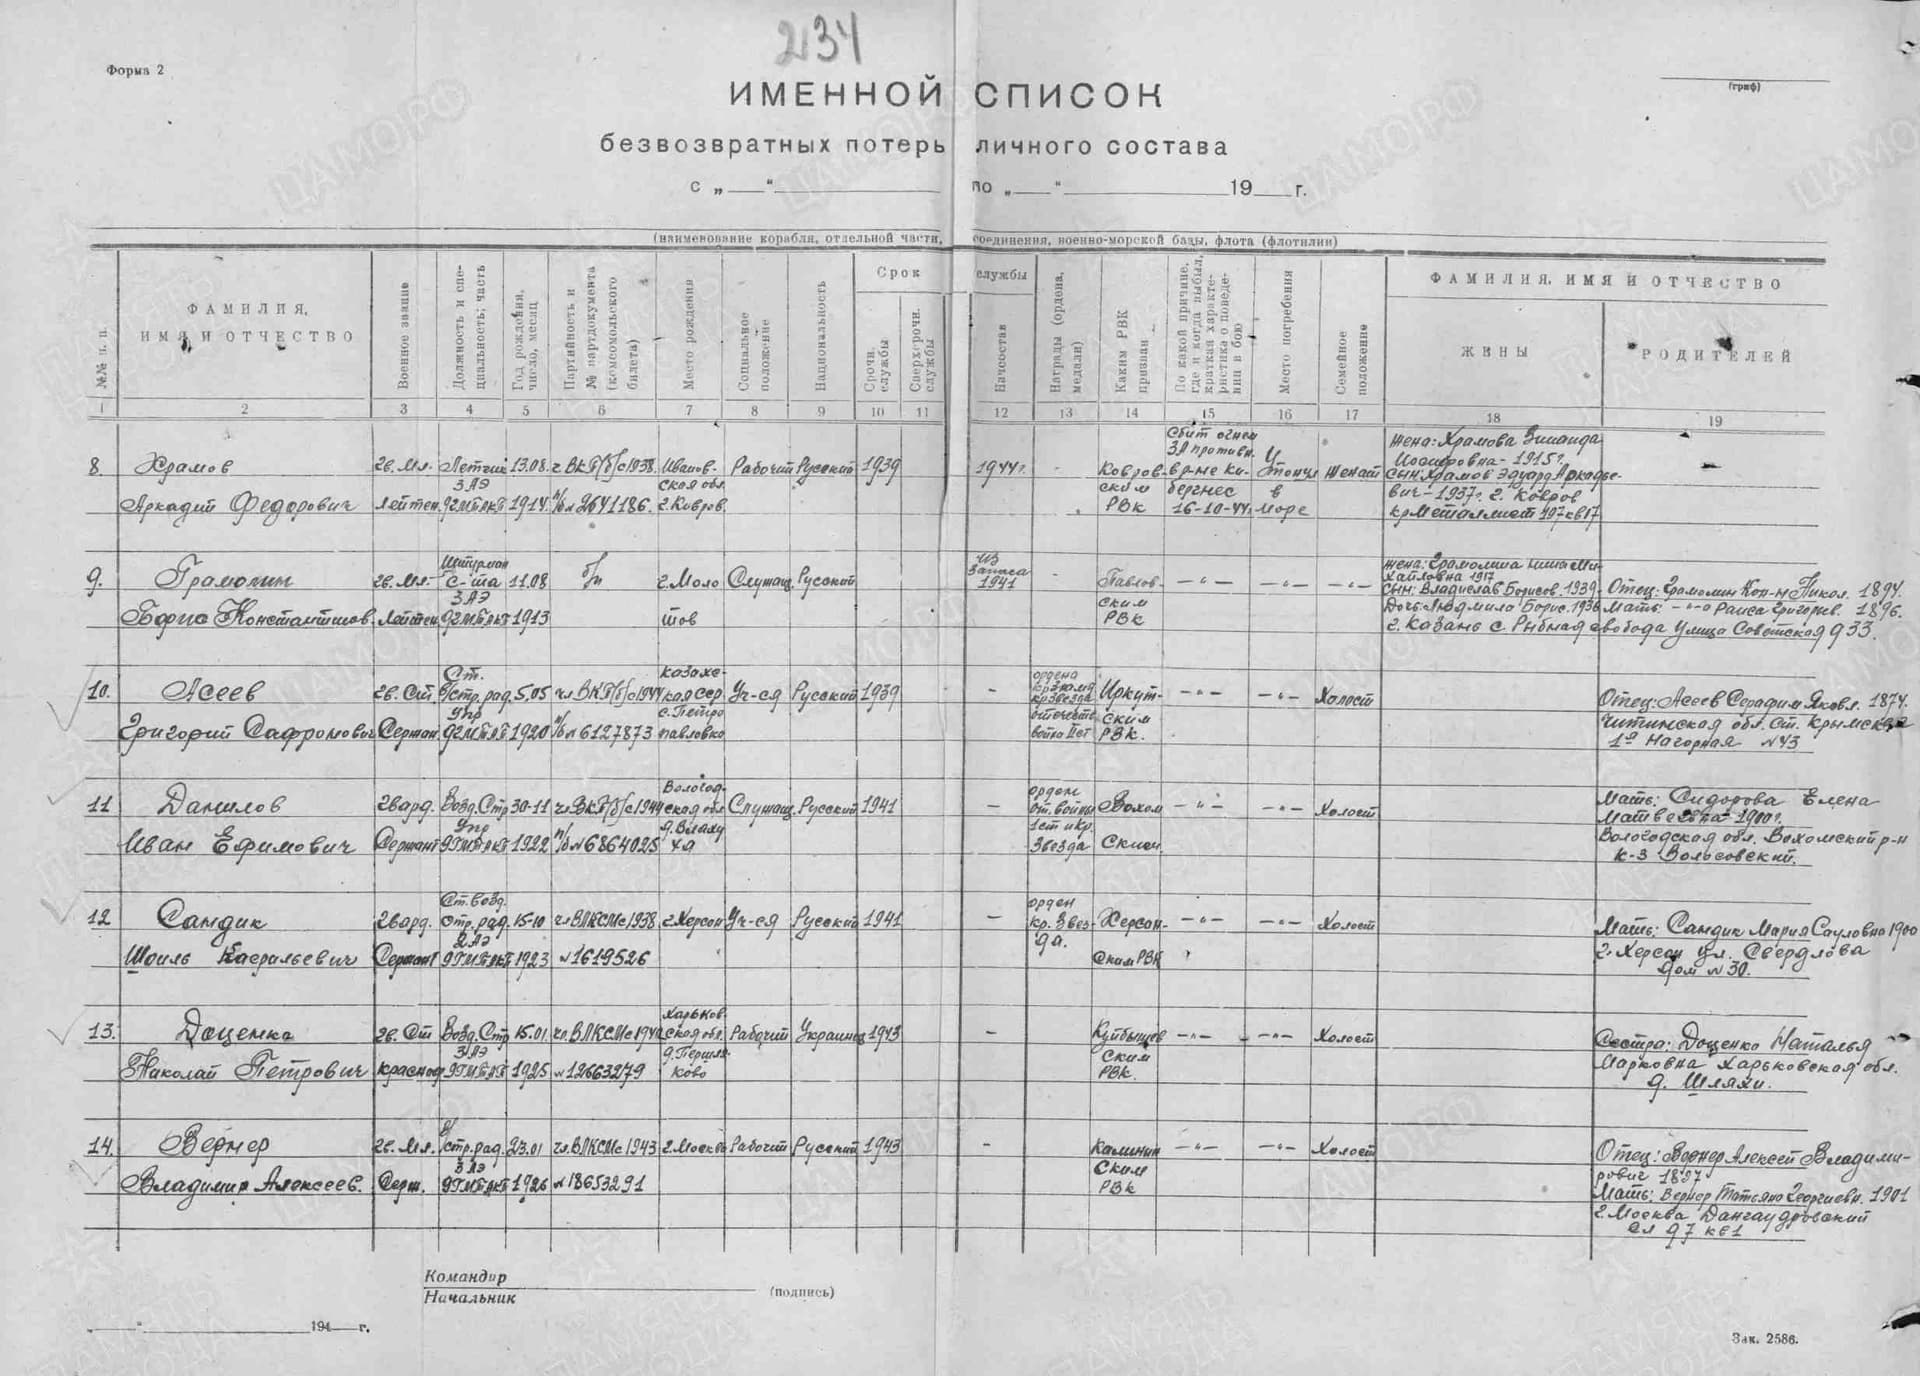 234
Форма 2
(гриф)
ИМЕННОЙ СПИСОК
безвозвратных потерь личного состава
с „ “ по „ “ 19 г.
(наименование корабля, отдельной части, соединения, военно-морской базы, флота (флотилии)
№№ п. п.
ФАМИЛИЯ, ИМЯ И ОТЧЕСТВО
Военное звание
Должность и специальность; часть
Год рождения, число, месяц
Партийность и № партдокумента (комсомольского билета)
Место рождения
Социальное положение
Национальность
Срок службы
Срочн. службы
Сверх-срочн. службы
Начсостав
Награды (ордена, медали)
Каким РВК призван
По какой причине, где и когда выбыл, краткая характеристика о поведении в бою
Место погребения
Семейное положение
ФАМИЛИЯ, ИМЯ И ОТЧЕСТВО
ЖЕНЫ
РОДИТЕЛЕЙ
1 2 3 4 5 6 7 8 9 10 11 12 13 14 15 16 17 18 19
8. Храмов Аркадий Федорович
гв. Мл. Лейтен.
Летчик 3 АЭ 9ГМТАП
13.08. 1914.
ч ВКП/б/ с 1938. п/б № 2641186.
Ивановская обл. г. Ковров.
Рабочий Русский 1939 1944г. -
Ковровским РВК
Сбит огнем ЗА противн. вр-не Киbergнес 16-10-44г.
Утонул в море
Женат
жена: Храмова Зинаида Иосифовна - 1915г.
сын: Храмов Эдуард Аркадьевич - 1937г. г. Ковров
-
9. Грамолин Борис Константинов.
гв. Мл. Лейтен.
Штурман с-та 3 АЭ
11.08 1913
б/п
г. Молотов
Служащ. Русский
Из запаса 1941 -
Павловским РВК
-"- -"- -"-
Хайловна 1917
сын: Владислав Борисов. 1939.
Дочь: Людмила Борис. 1936
Отец: Грамолин Кон-н Никол. 1894.
Мать: -"- Раиса Григорьев. 1896.
г. Казань с. Рыбная свобода Улица Советская д 33.
10. Асеев Григорий Сафронович
гв. Ст. Сержан.
Ст. 5.05 1920
чл ВКП/б/ с 1944 п/б № 6127873
Казахская ССР. с. Петропавловка
Уч-ся Русский 1939 -
Иркутским РВК.
-"- -"- Холост
Отец: Асеев Серафим Яковл. 1874.
Читинская обл. ст. Крымская
1я Нагорная № 43
11 Данилов Иван Ефимович
Гвард. Сержант
Возд. Стр
30-11 1922
чл ВКП/б/ с 1944 п/б № 6864025
Вологодская обл.
Служащ. Русский 1941 -
орден От. войны 1 ст и Кр. Звезда
Вохомским
-"- -"- Холост
Мать: Сидорова Елена
Матвеевна - 1900г.
Вологодская обл. Вохомский р-н
к-з Волосовский.
12 Сандик
Гвард. Сержант
Ст. возд. стр. рад. 2 АЭ
15-10 1923
чл ВЛКСМ с 1938 № 1619526
г. Херсон
Уч-ся Русский 1941 -
орден Кр. Звезда.
Херсонским РВК
-"- -"- Холост
Мать: Сандик Мария Сауловна 1900
г. Херсон ул. Свердлова
дом № 30.
13. Доценко Николай Петрович
гв. Ст Красноф
Возд. Стр 3 АЭ
15.01. 1925
чл. ВЛКСМ с 1942 № 12663279
Харьковская обл.
Рабочий Украинец 1943 -
Куйбышевским РВК.
-"- -"- Холост
Сестра: Доценко Наталья
Марковна Харьковская обл.
д. Шляхи.
14. Вернер Владимир Алексеев.
гв. Мл. Серж.
В/стр. рад. 3 АЭ
23.01 1926
чл. ВЛКСМ с 1943 № 18653291
г. Москва
Рабочий Русский 1943 -
Калининским РВК
-"- -"- Холост
Отец: Вернер Алексей Владимирович 1897
Мать: Вернер Татьяна Георгиевн. 1901
г. Москва Дангауэровский
Командир
Начальник
(подпись)
„ “ 194 г.
Зак. 2586.